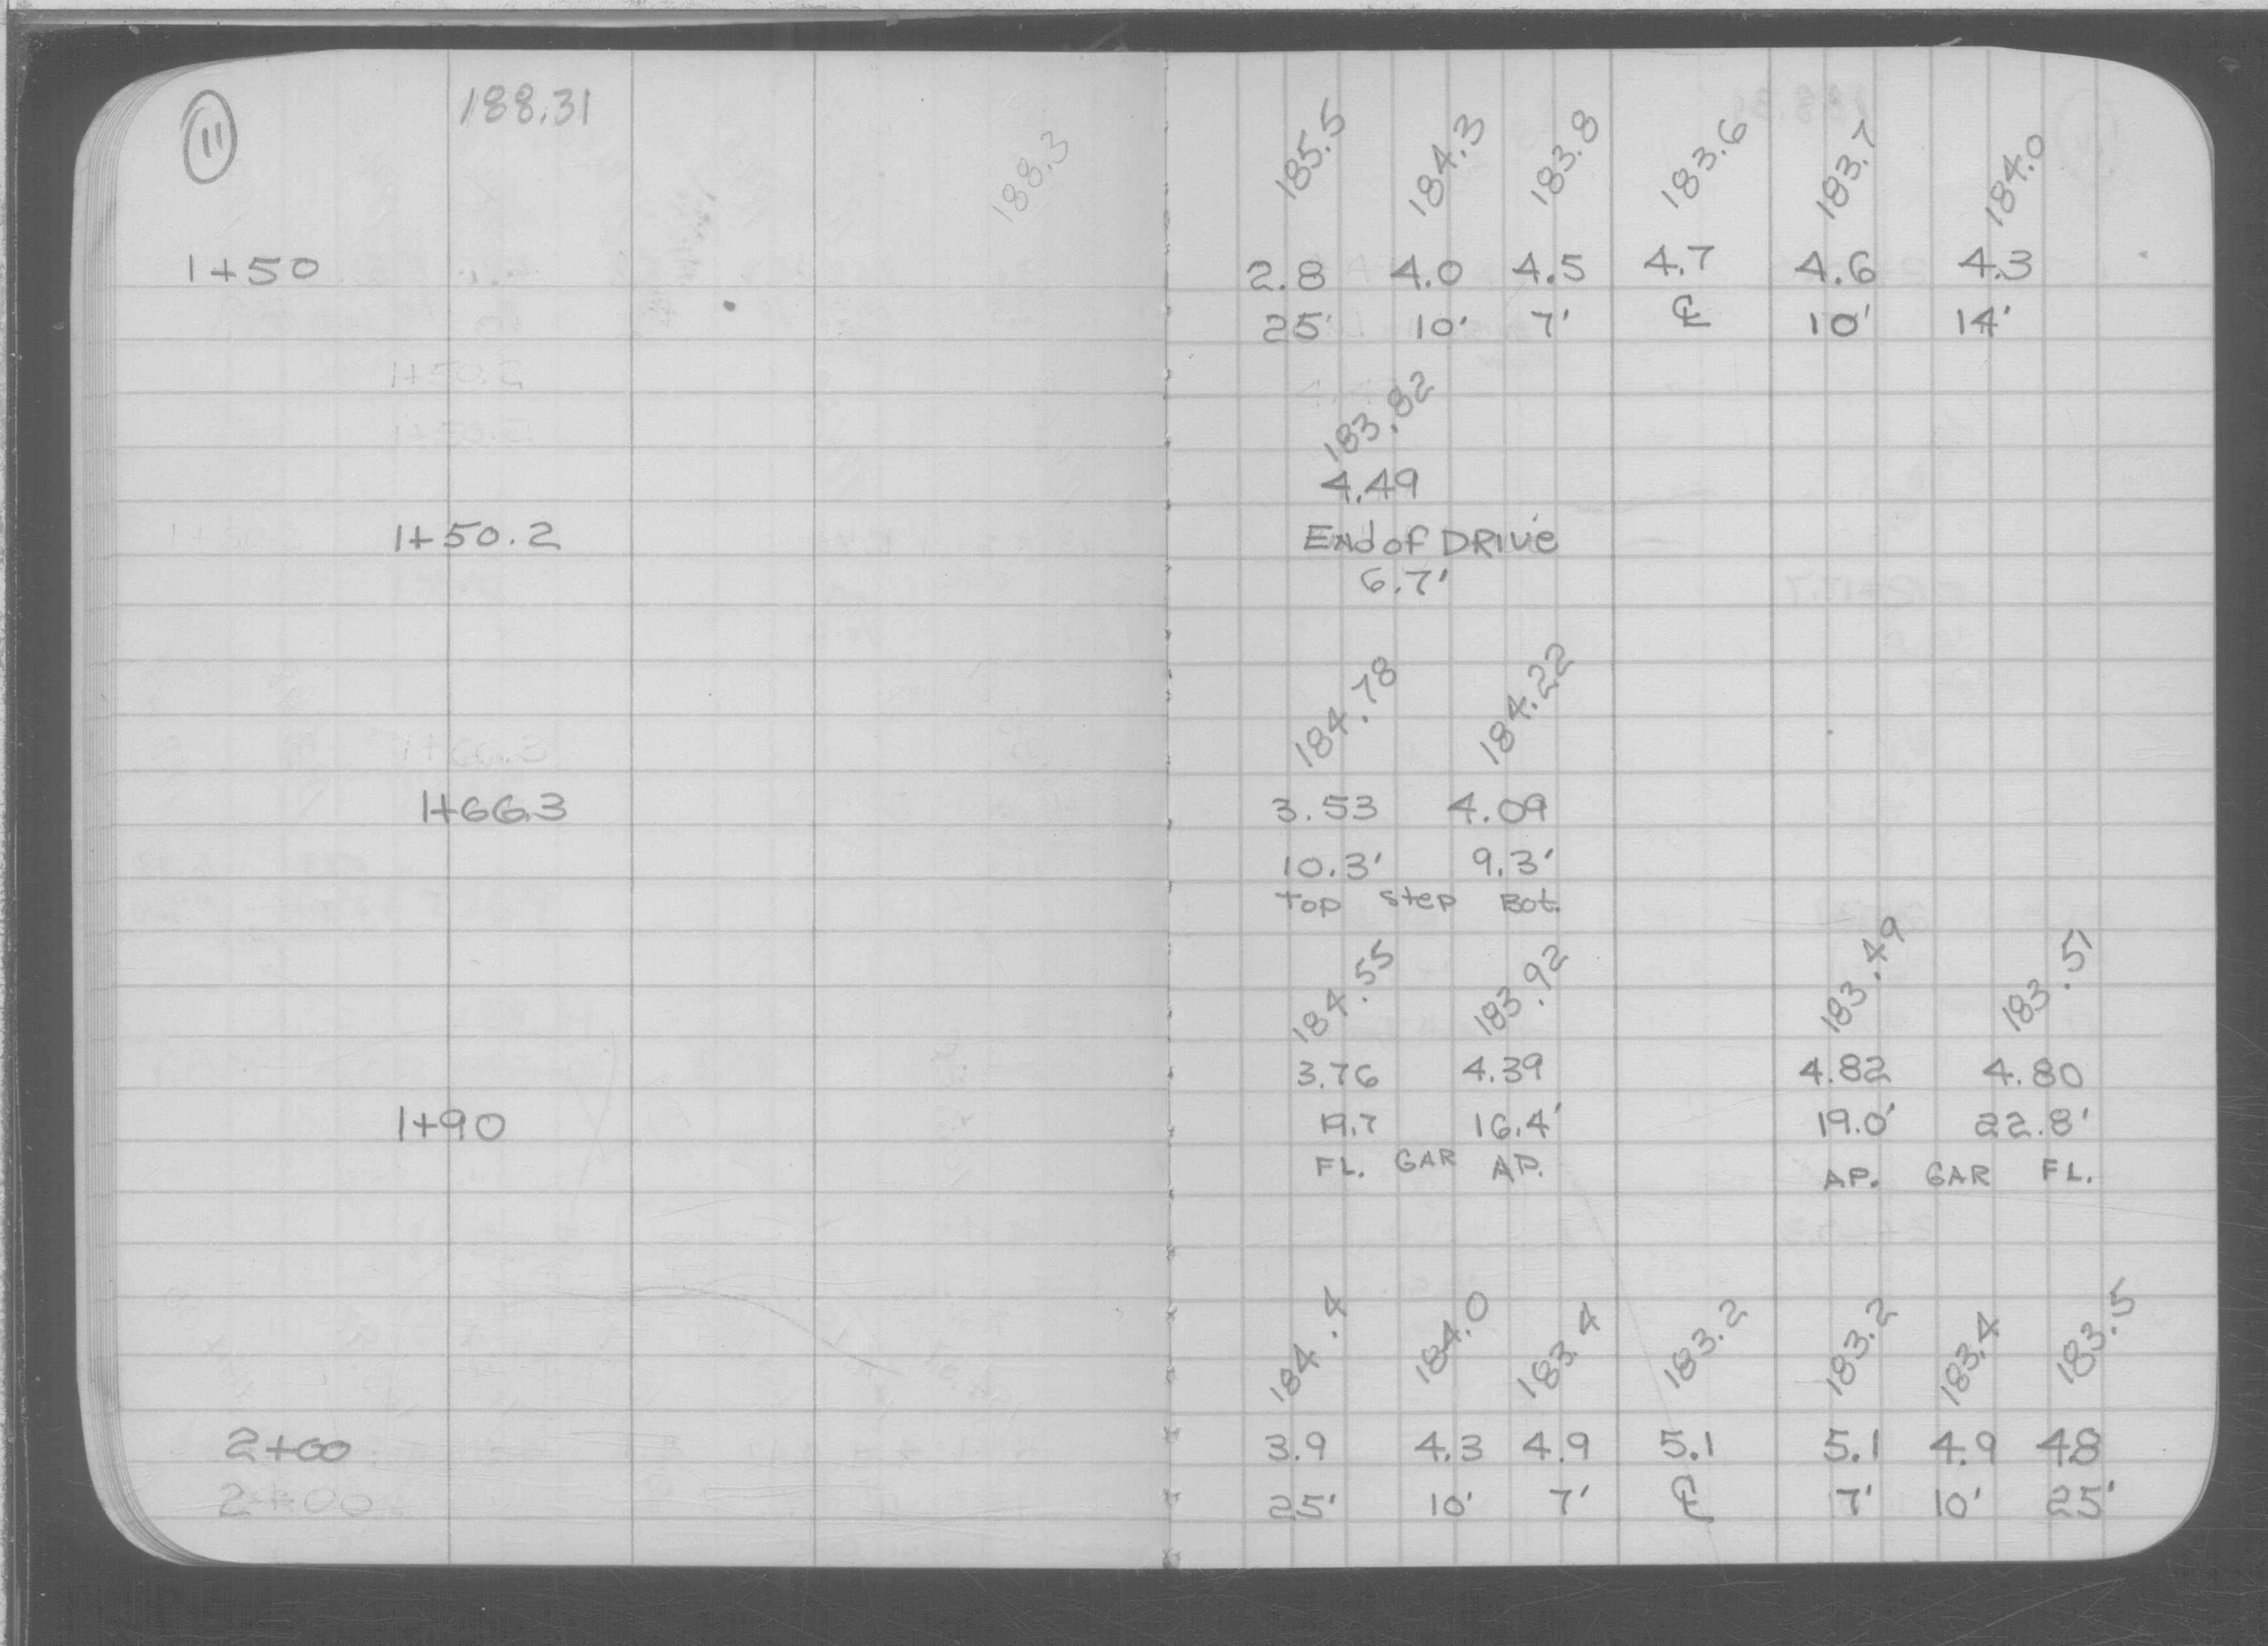 11 188.31
188.3 185.5 184.3 183.8 183.6 183.7 184.0
1+50 2.8 4.0 4.5 4.7 4.6 4.3
25' 10' 7' ℄ 10' 14'
183.82
4.49
1+50.2 End of DRIVE
6.7'
184.78 184.22
1+66.3 3.53 4.09
10.3' 9.3'
Top Step Bot.
184.55 183.92 183.49 183.51
3.76 4.39 4.82 4.80
1+90 19.7 16.4' 19.0' 22.8'
FL. GAR AP. AP. GAR FL.
184.4 184.0 183.4 183.2 183.2 183.4 183.5
2+00 3.9 4.3 4.9 5.1 5.1 4.9 4.8
2+00 25' 10' 7' ℄ 7' 10' 25'